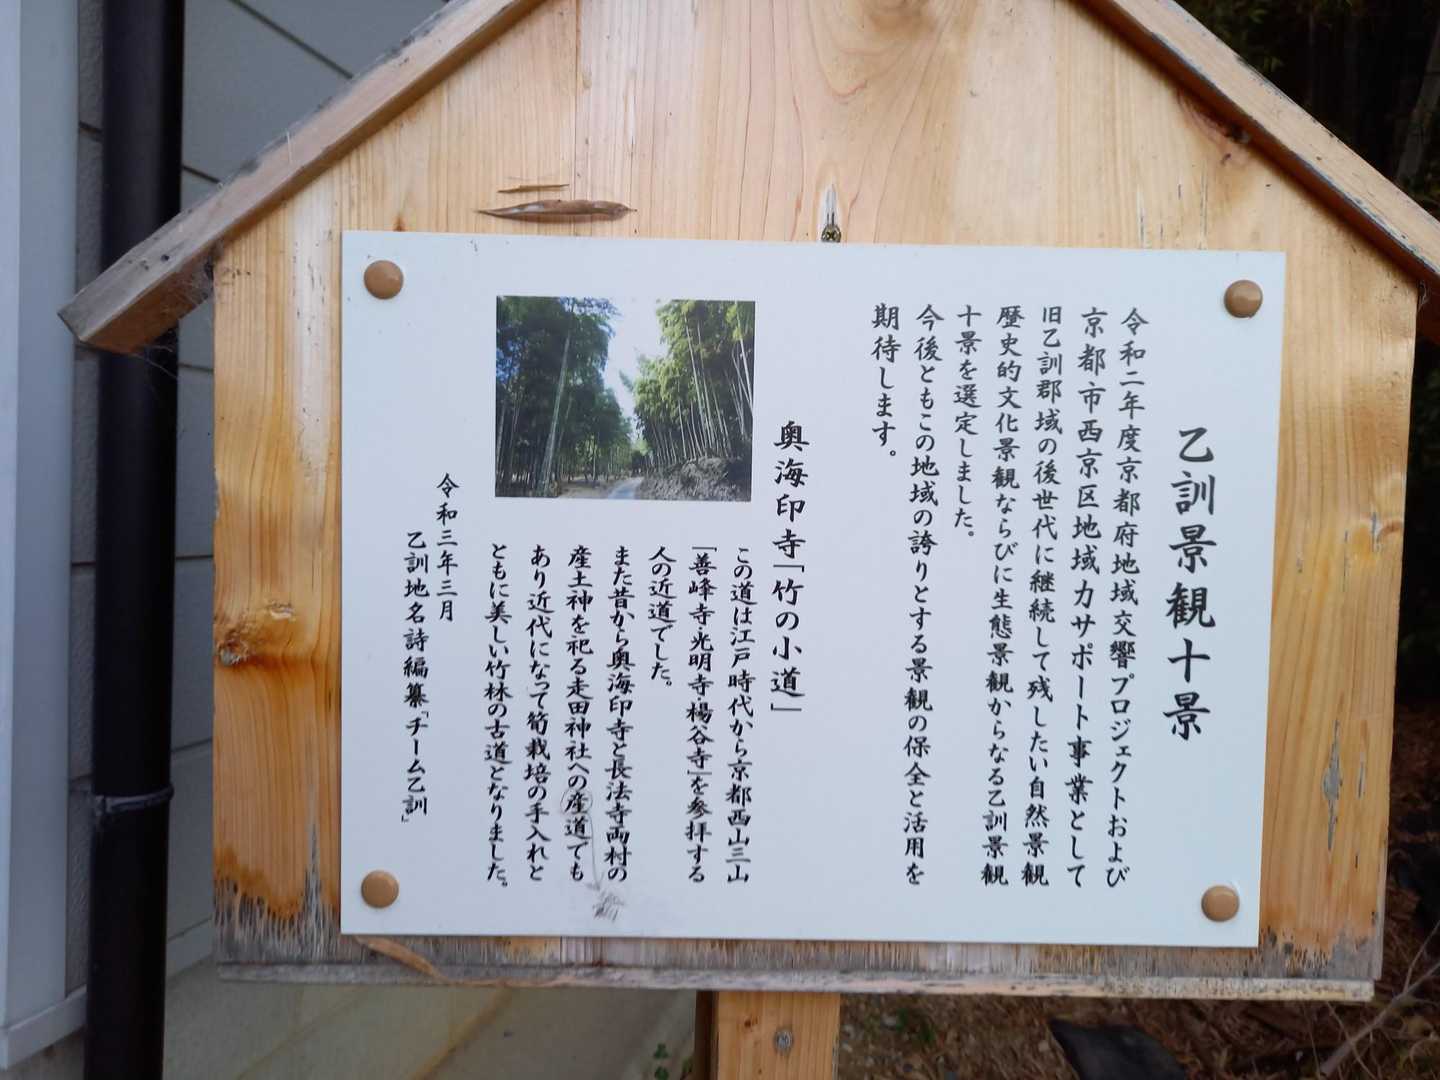 乙訓景観十景
令和二年度京都府地域交響プロジェクトおよび
京都市西京区地域力サポート事業として
旧乙訓郡域の後世代に継続して残したい自然景観
歴史的文化景観ならびに生態景観からなる乙訓景観
十景を選定しました。
今後ともこの地域の誇りとする景観の保全と活用を
期待します。
奥海印寺「竹の小道」
この道は江戸時代から京都西山三山
「善峰寺・光明寺・楊谷寺」を参拝する
人の近道でした。
また昔から奥海印寺と長法寺両村の
産土神を祀る走田神社への産道でも
あり近代になって筍栽培の手入れと
ともに美しい竹林の古道となりました。
令和三年三月
乙訓地名詩編纂「チーム乙訓」